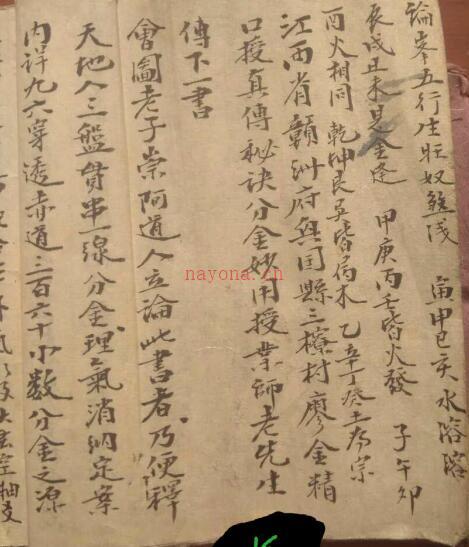 論峯五行生旺奴煞 寅申巳亥水溶溶
辰戌丑未是金逢 甲庚丙壬皆火發 子午卯
酉火相同 乾坤艮巽皆為木 乙辛丁癸土為宗
江西省贛州府興国縣三橑村廖金精
口授真傳秘訣分金妙用授業師老先生
傳下一書
會圖老子崇阿道人立論此書者乃便釋
天地人三盤貫串一線分金理氣消納定案
內詳九六穿透赤道三百六十小數分金之源
nayona.cn